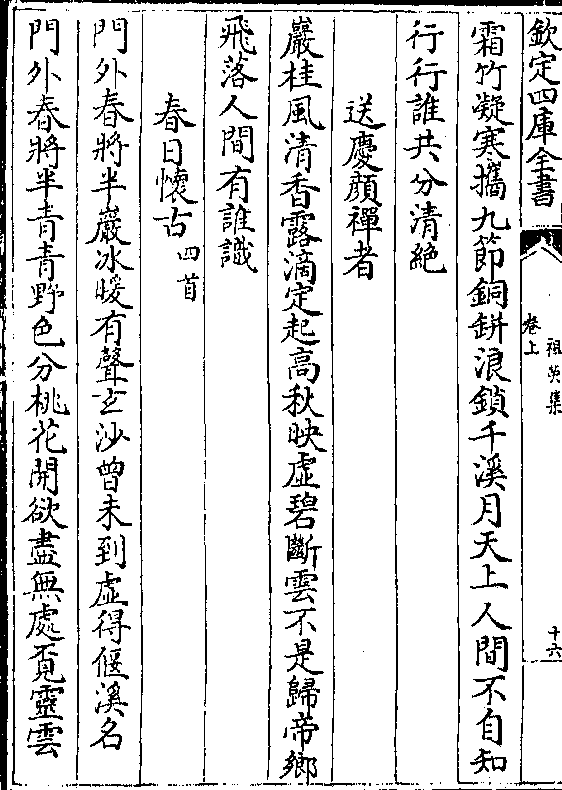 欽定四庫全書
祖英集
卷上
十六
霜竹凝寒攜九節銅缾浪鎖千溪月天上人間不自知
行行誰共分清絶
送慶顔禪者
巖桂風清香露滴定起高秋映虛碧斷雲不是歸帝鄉
飛落人間有誰識
春日懷古四首
門外春將半巖冰暖有聲玄沙曾未到虛得偃溪名
門外春將半青青野色分桃花開欲盡無處覓靈雲